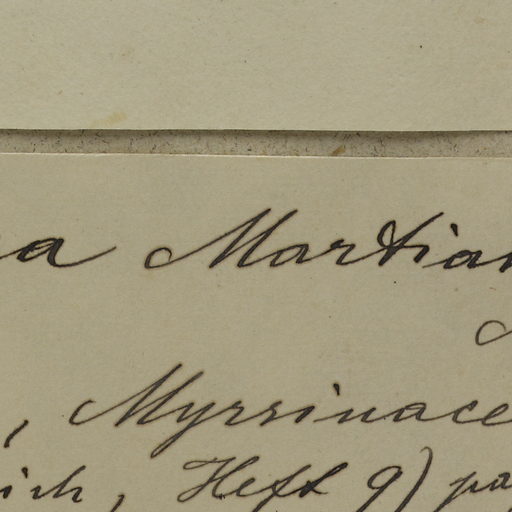 a Martian
, Myrsinace
ich, Heft 9) pag